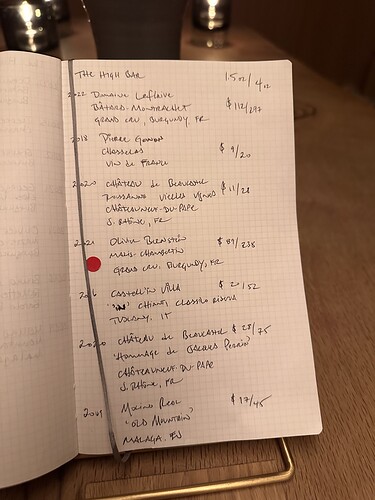 THE HIGH BAR 1.5oz/4oz
2022 Domaine Leflaive
Bâtard-Montrachet $112/297
Grand Cru, Burgundy, FR
2018 Pierre Gonon
Chasselas $9/20
Vin de France
2020 Château de Beaucastel
Roussanne Vieilles Vignes $11/28
Châteauneuf-du-Pape
S. Rhône, FR
2021 Olivier Bernstein $89/238
Mazis-Chambertin
Grand Cru, Burgundy, FR
Castell'in Villa $20/52
Chianti Classico Riserva
Tuscany, IT
2020 Château de Beaucastel $28/75
Hommage de Jacques Perrin
Châteauneuf-du-Pape
S. Rhône, FR
Molino Real $17/45
"Old Mountain"
Malaga,